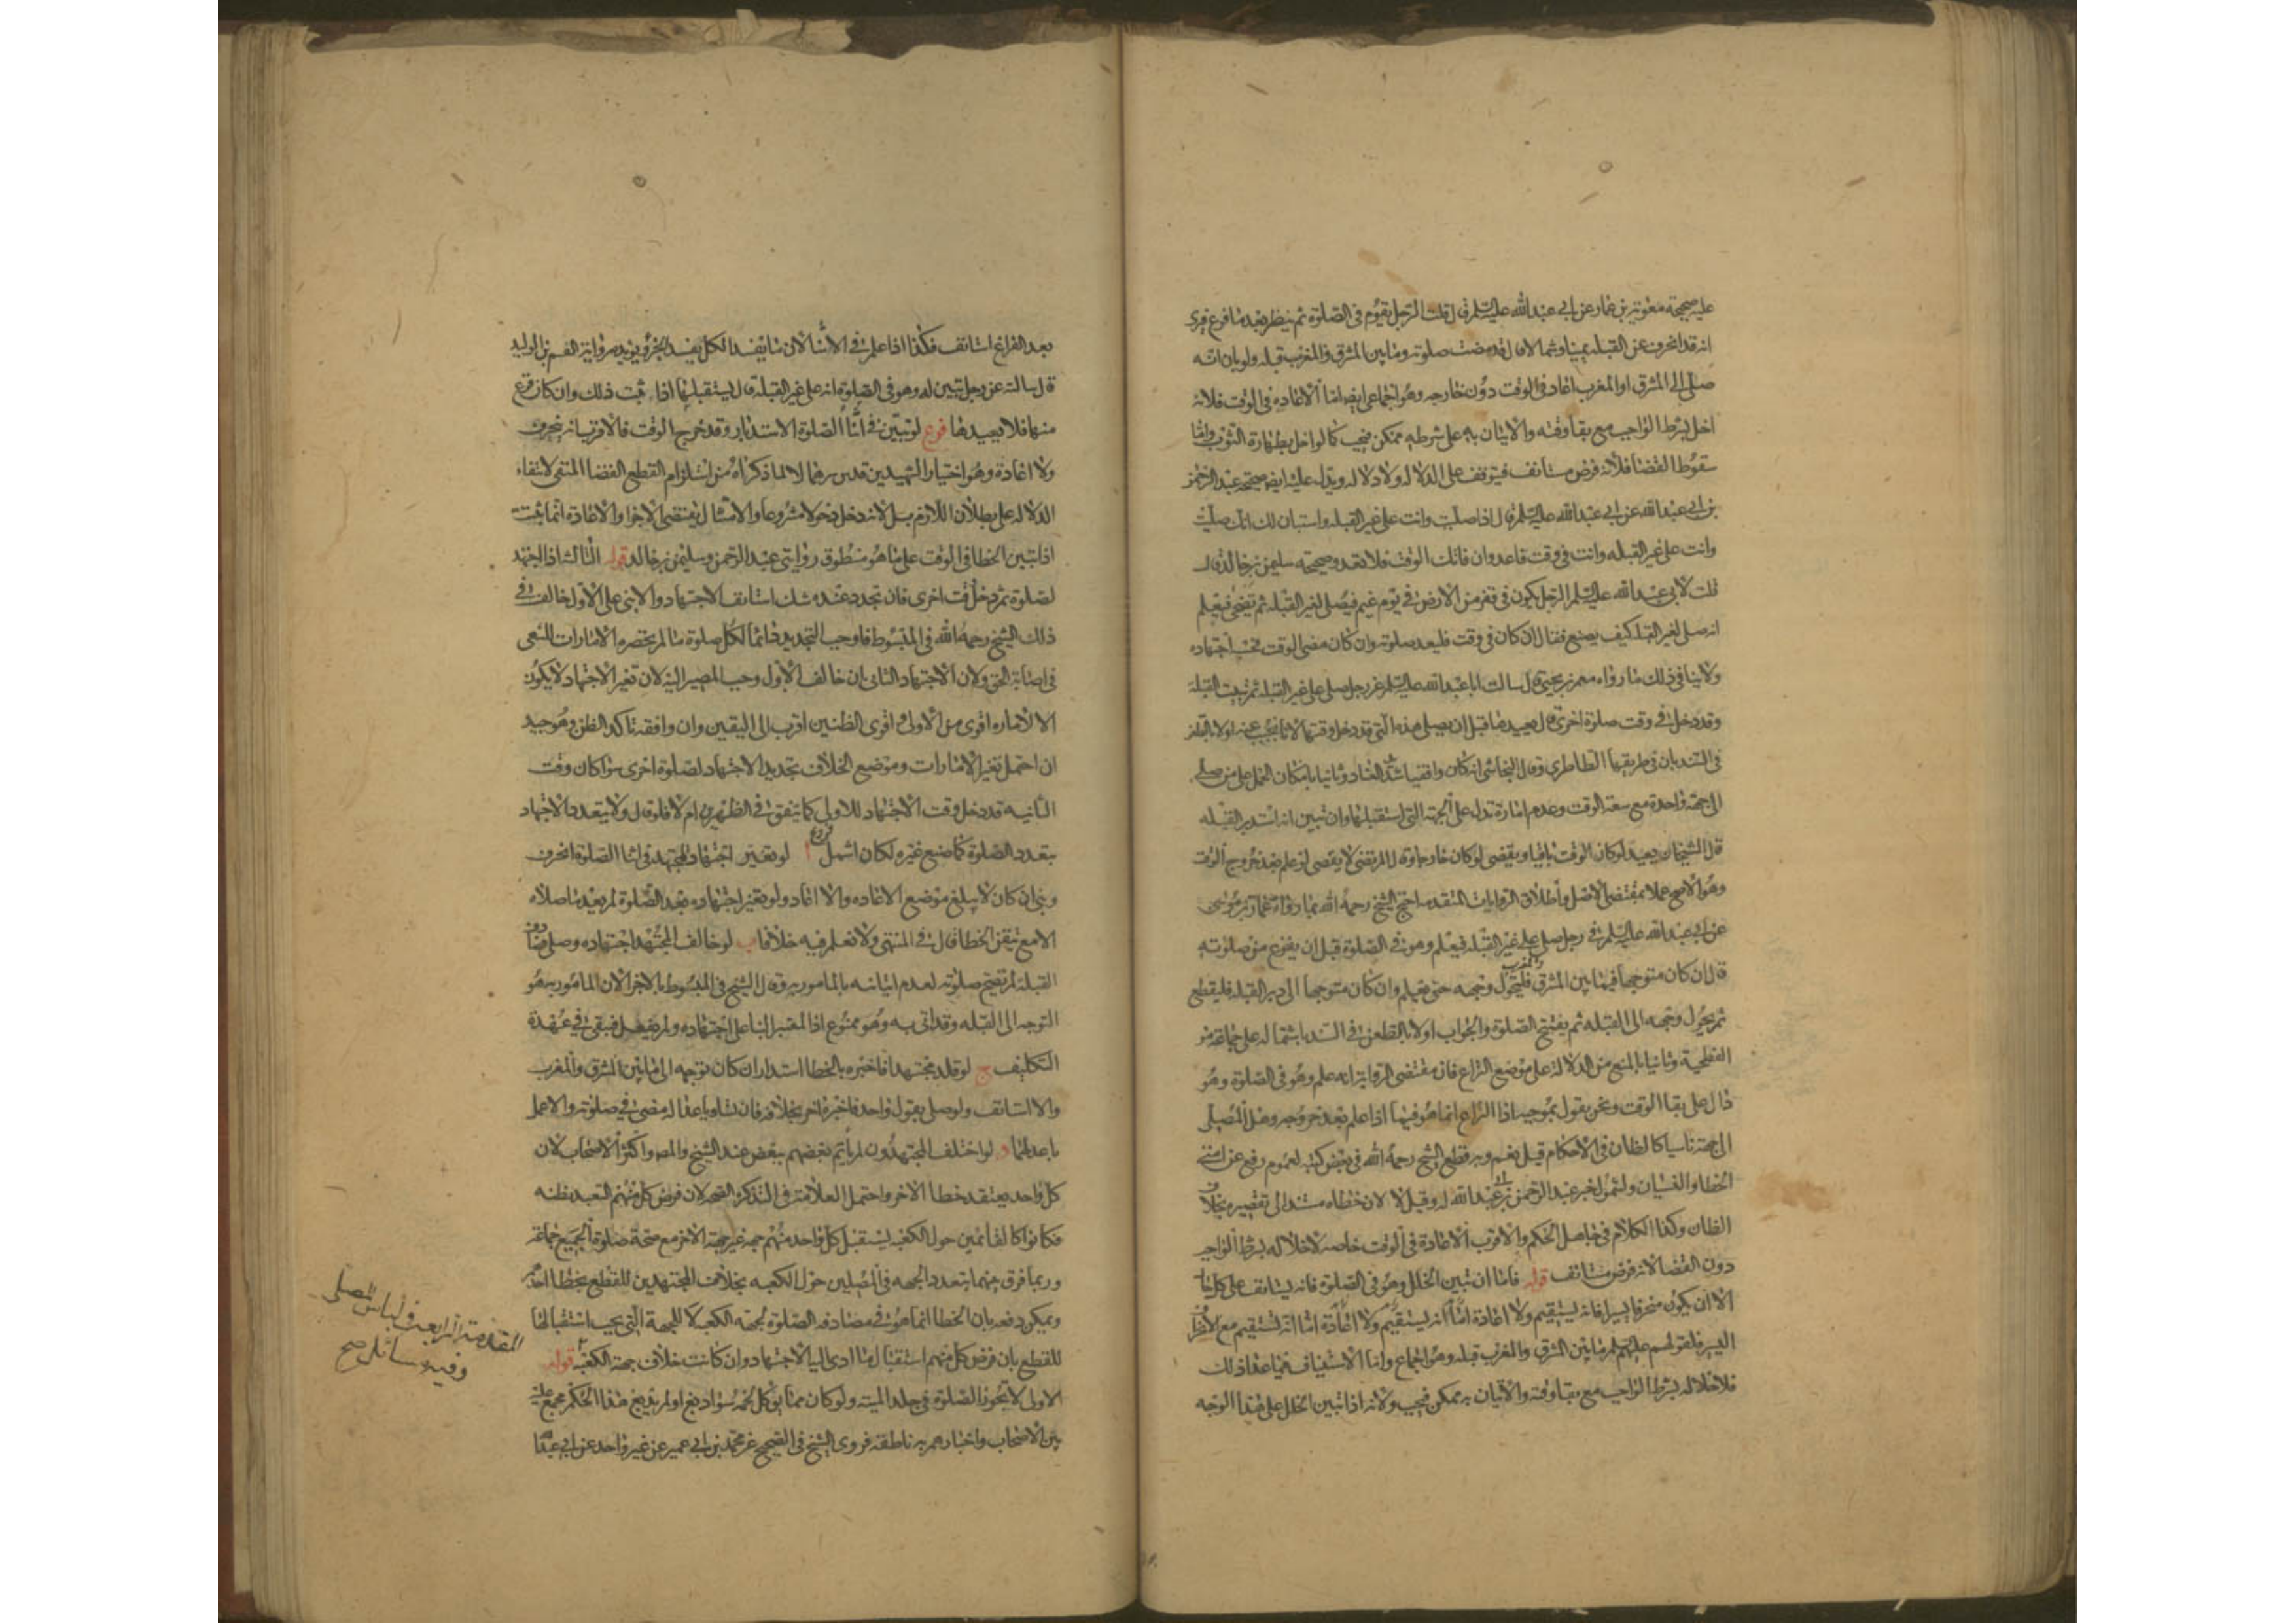 عليه صحيحة معوية بن عمار عن ابي عبد الله عليه السلم قال قلت الرجل يقوم في الصلوة ثم ينظر بعد ما فرغ فيرى
انه قد انحرف عن القبله يمينا وشمالا قال قد مضت صلوته وما بين المشرق والمغرب قبله ولو بان انه
صلى الى المشرق او المغرب اعاد في الوقت دون خارجه وهو اجماعي ايضا اما الاعاده في الوقت فلانه
اخل بشرط الواجب مع بقاء وقته والاتيان به على شرطه ممكن فيجب كما لو اخل بطهارة الثوب واما
سقوط القضا فلانه فرض مستانف فيتوقف على الدلاله ولا دلاله ويدل عليه ايضا صحيحة عبد الرحمن
بن ابي عبد الله عن ابي عبد الله عليه السلم قال اذا صليت وانت على غير القبله واستبان لك انك صليت
وانت على غير القبله وانت في وقت فاعد وان فاتك الوقت فلا تعد وصحيحه سليمن بن خالد قال
قلت لابي عبد الله عليه السلم الرجل يكون في قفر من الارض في يوم غيم فيصلى لغير القبله ثم تضحى فيعلم
انه صلى لغير القبله كيف يصنع فقال ان كان في وقت فليعد صلوته وان كان مضى الوقت فحسبه اجتهاده
ولا ينافي ذلك ما رواه معمر بن يحيى قال سالت ابا عبد الله عليه السلم عن رجل صلى على غير القبله ثم تبينت القبلة
وقد دخل في وقت صلوة اخرى قال يعيدها قبل ان يصلى هذه التي قد دخل وقتها لانا نجيب عنه اولا بالطعن
في السند بان في طريقها الطاطرى وقال النجاشي انه كان واقفيا شديد العناد وثانيا بامكان الحمل على من صلى
الى جهة واحدة مع سعة الوقت وعدم امارة تدل على الجهة التي استقبلها وان تبين انه استدبر القبله
قال الشيخان يعيد لو كان الوقت باقيا ويقضى لو كان خارجا وقال المرتضى لا يقضى لو علم بعد خروج الوقت
وهو الاصح عملا بمقتضى الاصل واطلاق الروايات المتقدمه احتج الشيخ رحمه الله بما رواه عمار بن موسى
عن ابي عبد الله عليه السلم في رجل صلى على غير القبله فيعلم وهو في الصلوة قبل ان يفرغ من صلوته
قال ان كان متوجها فيما بين المشرق والمغرب فليحول وجهه حين يعلم وان كان متوجها الى دبر القبله فليقطع
ثم يحول وجهه الى القبله ثم يفتتح الصلوة والجواب اولا بالطعن في السند باشتماله على جماعة من
الفطحية وثانيا بالمنع من الدلالة على موضع النزاع فان مقتضى الرواية انه علم وهو في الصلوة وهو
دال على بقا الوقت ونحن نقول بموجبه اذا النزاع انما هو فيما اذا علم بعد خروجه وهل المصلى
الى جهة ناسيا كالظان في الاحكام قيل نعم وبه قطع الشيخ رحمه الله في بعض كتبه لعموم رفع عن امتى
الخطا والنسيان ولشمول خبر عبد الرحمن بن ابي عبد الله له وقيل لا لان خطاه مستند الى تقصيره بخلاف
الظان وكذا الكلام في جاهل الحكم والاقرب الاعادة في الوقت خاصه لاخلاله بشرط الواجب
دون القضا لانه فرض مستانف قوله فاما ان تبين الخلل وهو في الصلوة فانه يستانف على كل حال
الا ان يكون منحرفا يسيرا فانه يستقيم ولا اعادة اما انه يستقيم ولا اعادة اما انه يستقيم مع الانحراف
اليسير فلقولهم عليهم السلم ما بين المشرق والمغرب قبله وهو اجماع واما الاستيناف فيما عدا ذلك
فلاخلاله بشرط الواجب مع بقا وقته والاتيان به ممكن فيجب ولانه اذا تبين الخلل على هذا الوجه
بعد الفراغ استانف فكذا اذا علم في الاثنا لان ما يفسد الكل يفسد الجزء ويؤيده رواية القسم بن الوليد
قال سالته عن رجل تبين له وهو في الصلوة انه على غير القبلة قال يستقبلها اذا ثبت ذلك وان كان فرغ
منها فلا يعيدها فرع لو تبين في اثنا الصلوة الاستدبار وقد خرج الوقت فالاقرب انه ينحرف
ولا اعادة وهو اختيار الشهيدين قدس سرهما لا لما ذكراه من استلزام القطع القضا المنتفى لانتفاء
الدلاله على بطلان اللازم بل لانه دخل دخولا مشروعا والامتثال يقتضى الاجزا والاعادة انما تثبت
اذا تبين الخطا في الوقت على ما هو منطوق روايتي عبد الرحمن وسليمن بن خالد قوله الثالث اذا اجتهد
لصلوة ثم دخل وقت اخرى فان تجدد عنده شك استانف الاجتهاد والا بنى على الاول خالف في
ذلك الشيخ رحمه الله في المبسوط فاوجب التجديد دائما لكل صلوة ما لم يحضره الامارات للسعى
في اصابة الحق ولان الاجتهاد الثاني ان خالف الاول وجب المصير اليه لان تغير الاجتهاد لا يكون
الا لاماره اقوى من الاولى واقوى الظنين اقرب الى اليقين وان وافقه تاكد الظن وهو جيد
ان احتمل تغير الامارات وموضع الخلاف تجديد الاجتهاد لصلوة اخرى سواء كان وقت
الثانيه قد دخل وقت الاجتهاد للاولى كما يتفق في الظهرين ام لا فلو قال ولا يتعدد الاجتهاد
بتعدد الصلوة كما صنع غيره لكان اشمل فروع ا لو تغير اجتهاد المجتهد في اثنا الصلوة انحرف
وبنى ان كان لا يبلغ موضع الاعاده والا اعاد ولو تغير اجتهاده بعد الصلوة لم يعد ما صلاه
الا مع تيقن الخطا قال في المنتهى ولا نعلم فيه خلافا ب لو خالف المجتهد اجتهاده وصلى فصادف
القبلة لم تصح صلوته لعدم اتيانه بالمامور به وقال الشيخ في المبسوط بالاجزا لان المامور به هو
التوجه الى القبله وقد اتى به وهو ممنوع اذ المعتبر البنا على اجتهاده ولم يفعل فبقى في عهدة
التكليف ج لو قلد مجتهدا فاخبره بالخطا استدار ان كان توجه الى ما بين المشرق والمغرب
والا استانف ولو صلى بقول واحد فاخبره اخر بخلافه فان تساويا عدالة مضى في صلوته والا عمل
باعدلهما د لو اختلف المجتهدون لم ياتم بعضهم ببعض عند الشيخ والمص واكثر الاصحاب لان
كل واحد يعتقد خطا الاخر واحتمل العلامة في التذكرة الصحه لان فرض كل منهم التعبد بظنه
فكانوا كالقائمين حول الكعبه يستقبل كل واحد منهم جهه غير جهة الاخر مع صحة صلوة الجميع جماعة
وربما فرق بينهما بتعدد الجهه في المصلين حول الكعبه بخلاف المجتهدين للقطع بخطا احدهم
ويمكن دفعه بان الخطا انما هو في مصادفه الصلوة لجهة الكعبه لا للجهة التي يجب استقبالها
للقطع بان فرض كل منهم استقبال ما ادى اليه الاجتهاد وان كانت خلاف جهة الكعبه قوله
الاولى لا تجوز الصلوة في جلد الميته ولو كان مما يوكل لحمه سواء دبغ او لم يدبغ هذا الحكم مجمع عليه
بين الاصحاب واخبارهم به ناطقة فروى الشيخ في الصحيح عن محمد بن ابي عمير عن غير واحد عن ابي عبد الله
المقدمة الرابعة في لباس المصلى
وفيه مسائل صح